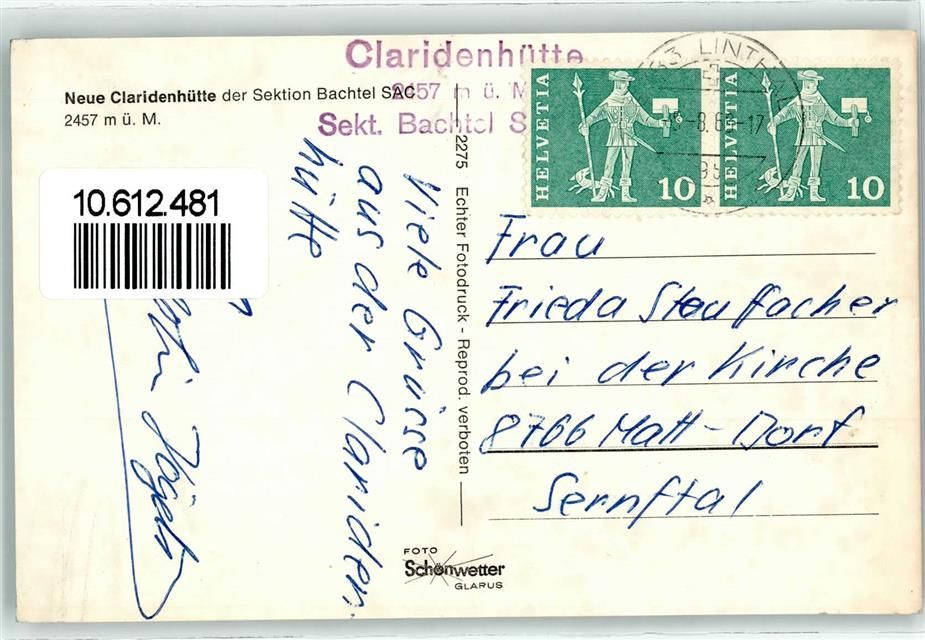 Claridenhütte
2457 m ü. M
Sekt. Bachtel S
Neue Claridenhütte der Sektion Bachtel SAC
2457 m ü. M.
10.612.481
Viele Grüsse
aus der Clariden
hütte
2275 Echter Fotodruck - Reprod. verboten
HELVETIA
10
HELVETIA
10
LINTH
Frau
Frieda Stauffacher
bei der Kirche
8766 Matt-Dorf
Sernftal
FOTO
Schönwetter
GLARUS